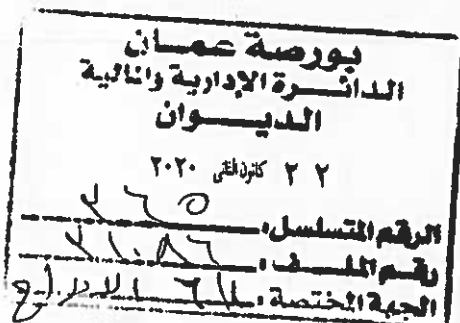 بورصة عمان
الدائرة الإدارية والمالية
الديوان
٢٢ كانون الثاني ٢٠٢٠
الرقم المتسلسل:
رقم الملف:
الجهة المختصة: الادراج